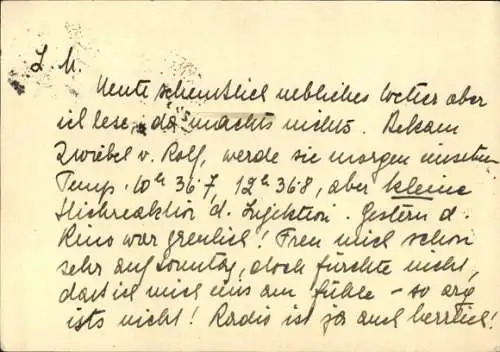 L. M.
Heute scheusslich nebliches Wetter aber
ich lese, da machts nichts. Bekam
Zwiebel v. Rolf, werde sie morgen einsetzen
Temp. 10h 36 7, 12h 36 8, aber kleine
Stichreaktion d. Injektion. Gestern d.
Kino war greulich! Freu mich schon
sehr auf Sonntag, doch fürchte nicht,
dass ich mich uns am fühle – so arg
ists nicht! Radio ist ja auch herrlich!